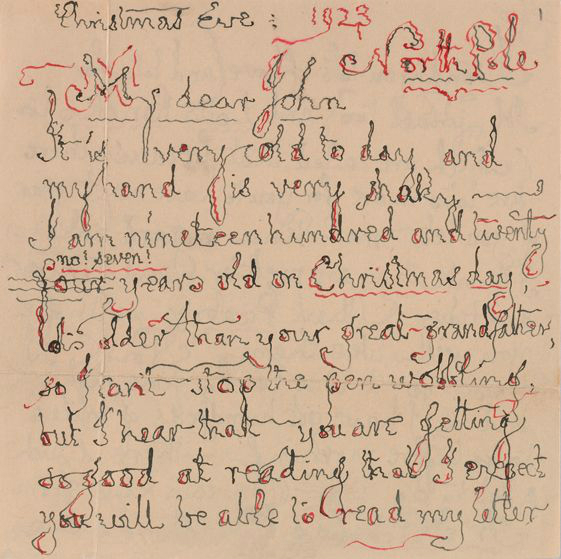 1
Christmas Eve: 1923
North Pole
My dear John
It is very cold to day and
my hand is very shaky —
I am nineteen hundred and twenty
no! seven!
four years old on Christmas day,
lots older than your great-grandfather,
so I can't stop the pen wobbling,
but I hear that you are getting
so good at reading that I expect
you will be able to read my letter